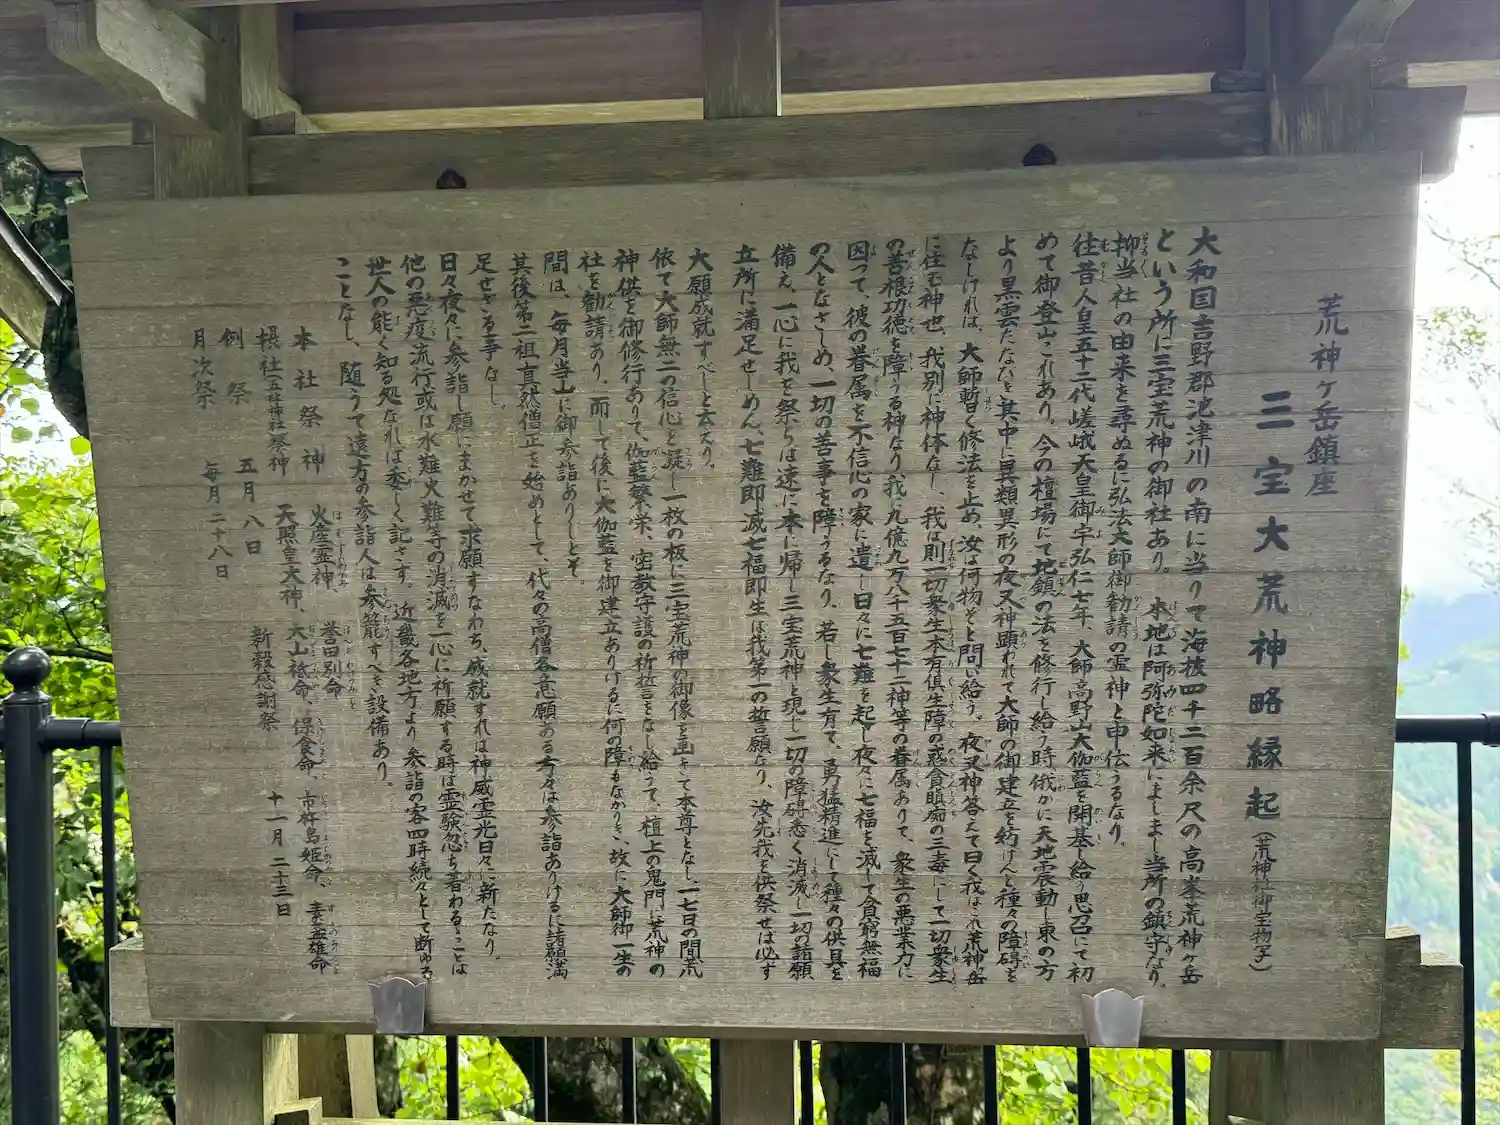 荒神ヶ岳鎮座
三宝大荒神略縁起(荒神社御宝物写)
大和国吉野郡池津川の南に当りて海抜四千二百余尺の高峯荒神ヶ岳
という所に三宝荒神の御社あり。本地は阿弥陀如来にましまし当所の鎮守なり。
抑当社の由来を尋ぬるに弘法大師御勧請の霊神と申伝うるなり。
往昔人皇五十二代嵯峨天皇御宇弘仁七年、大師高野山大伽藍を開基し給う思召にて初
めて御登山これあり。今の檀場にて地鎮の法を修行し給う時俄かに天地震動し東の方
より黒雲たなびき其中に異類異形の夜叉神顕われて大師の御建立を妨けんと種々の障碍を
なしければ、大師暫く修法を止め、汝は何物ぞと問い給う。夜叉神答えて曰く我はこれ荒神岳
に住む神也、我別に神体なし、我は則一切衆生本有倶生障の惑貪瞋痴の三毒にして一切衆生
の善根功徳を障うる神なり我に九億九万八千五百七十二神等の眷属ありて、衆生の悪業力に
因つて、彼の眷属を不信心の家に遣し日々に七難を起し夜々に七福を滅して貪窮無福
の人となさしめ、一切の苦事を障うるなり。若し衆生有て、勇猛精進にして種々の供具を
備え、一心に我を祭らは速に本に帰し三宝荒神と現し一切の障碍悉く消滅し一切の諸願
立所に満足せしめん、七難即滅七福即生は我第一の誓願なり、汝先我を供祭せば必ず
大願成就すべしと云えり。
依て大師無二の信心を凝し一枚の板に三宝荒神の御像を画きて本尊となし一七日の間荒
神供を御修行ありて、伽藍繁栄、密教守護の祈誓をなし給うて、檀上の鬼門に荒神の
社を勧請あり、而して後に大伽藍を御建立ありけるに何の障もなかりき、故に大師御一生の
間は、毎月当山に御参詣ありしとぞ。
其後第二祖真然僧正を始めとして、代々の高僧各危願ある方々は参詣ありけるに諸願満
足せざる事なし。
日々夜々に参詣し願にまかせて求願すなわち、感就すれは神威霊光日々に新たなり。
他の悪疫流行或は水難火難等の消滅を一心に祈願する時は霊験忽ち著わることは
世人の能く知る処なれは委しく記さず。近畿各地方より参詣の客四時続々として断ゆる
ことなし、随うて遠方の参詣人は参籠すべき設備あり。
本社祭神 火産霊神、誉田別命
摂社(五社神社)祭神 天照皇大神、大山祇命、保食命、市杵島姫命、素盞雄命
例祭 五月八日 新穀感謝祭 十一月二十三日
月次祭 毎月二十八日